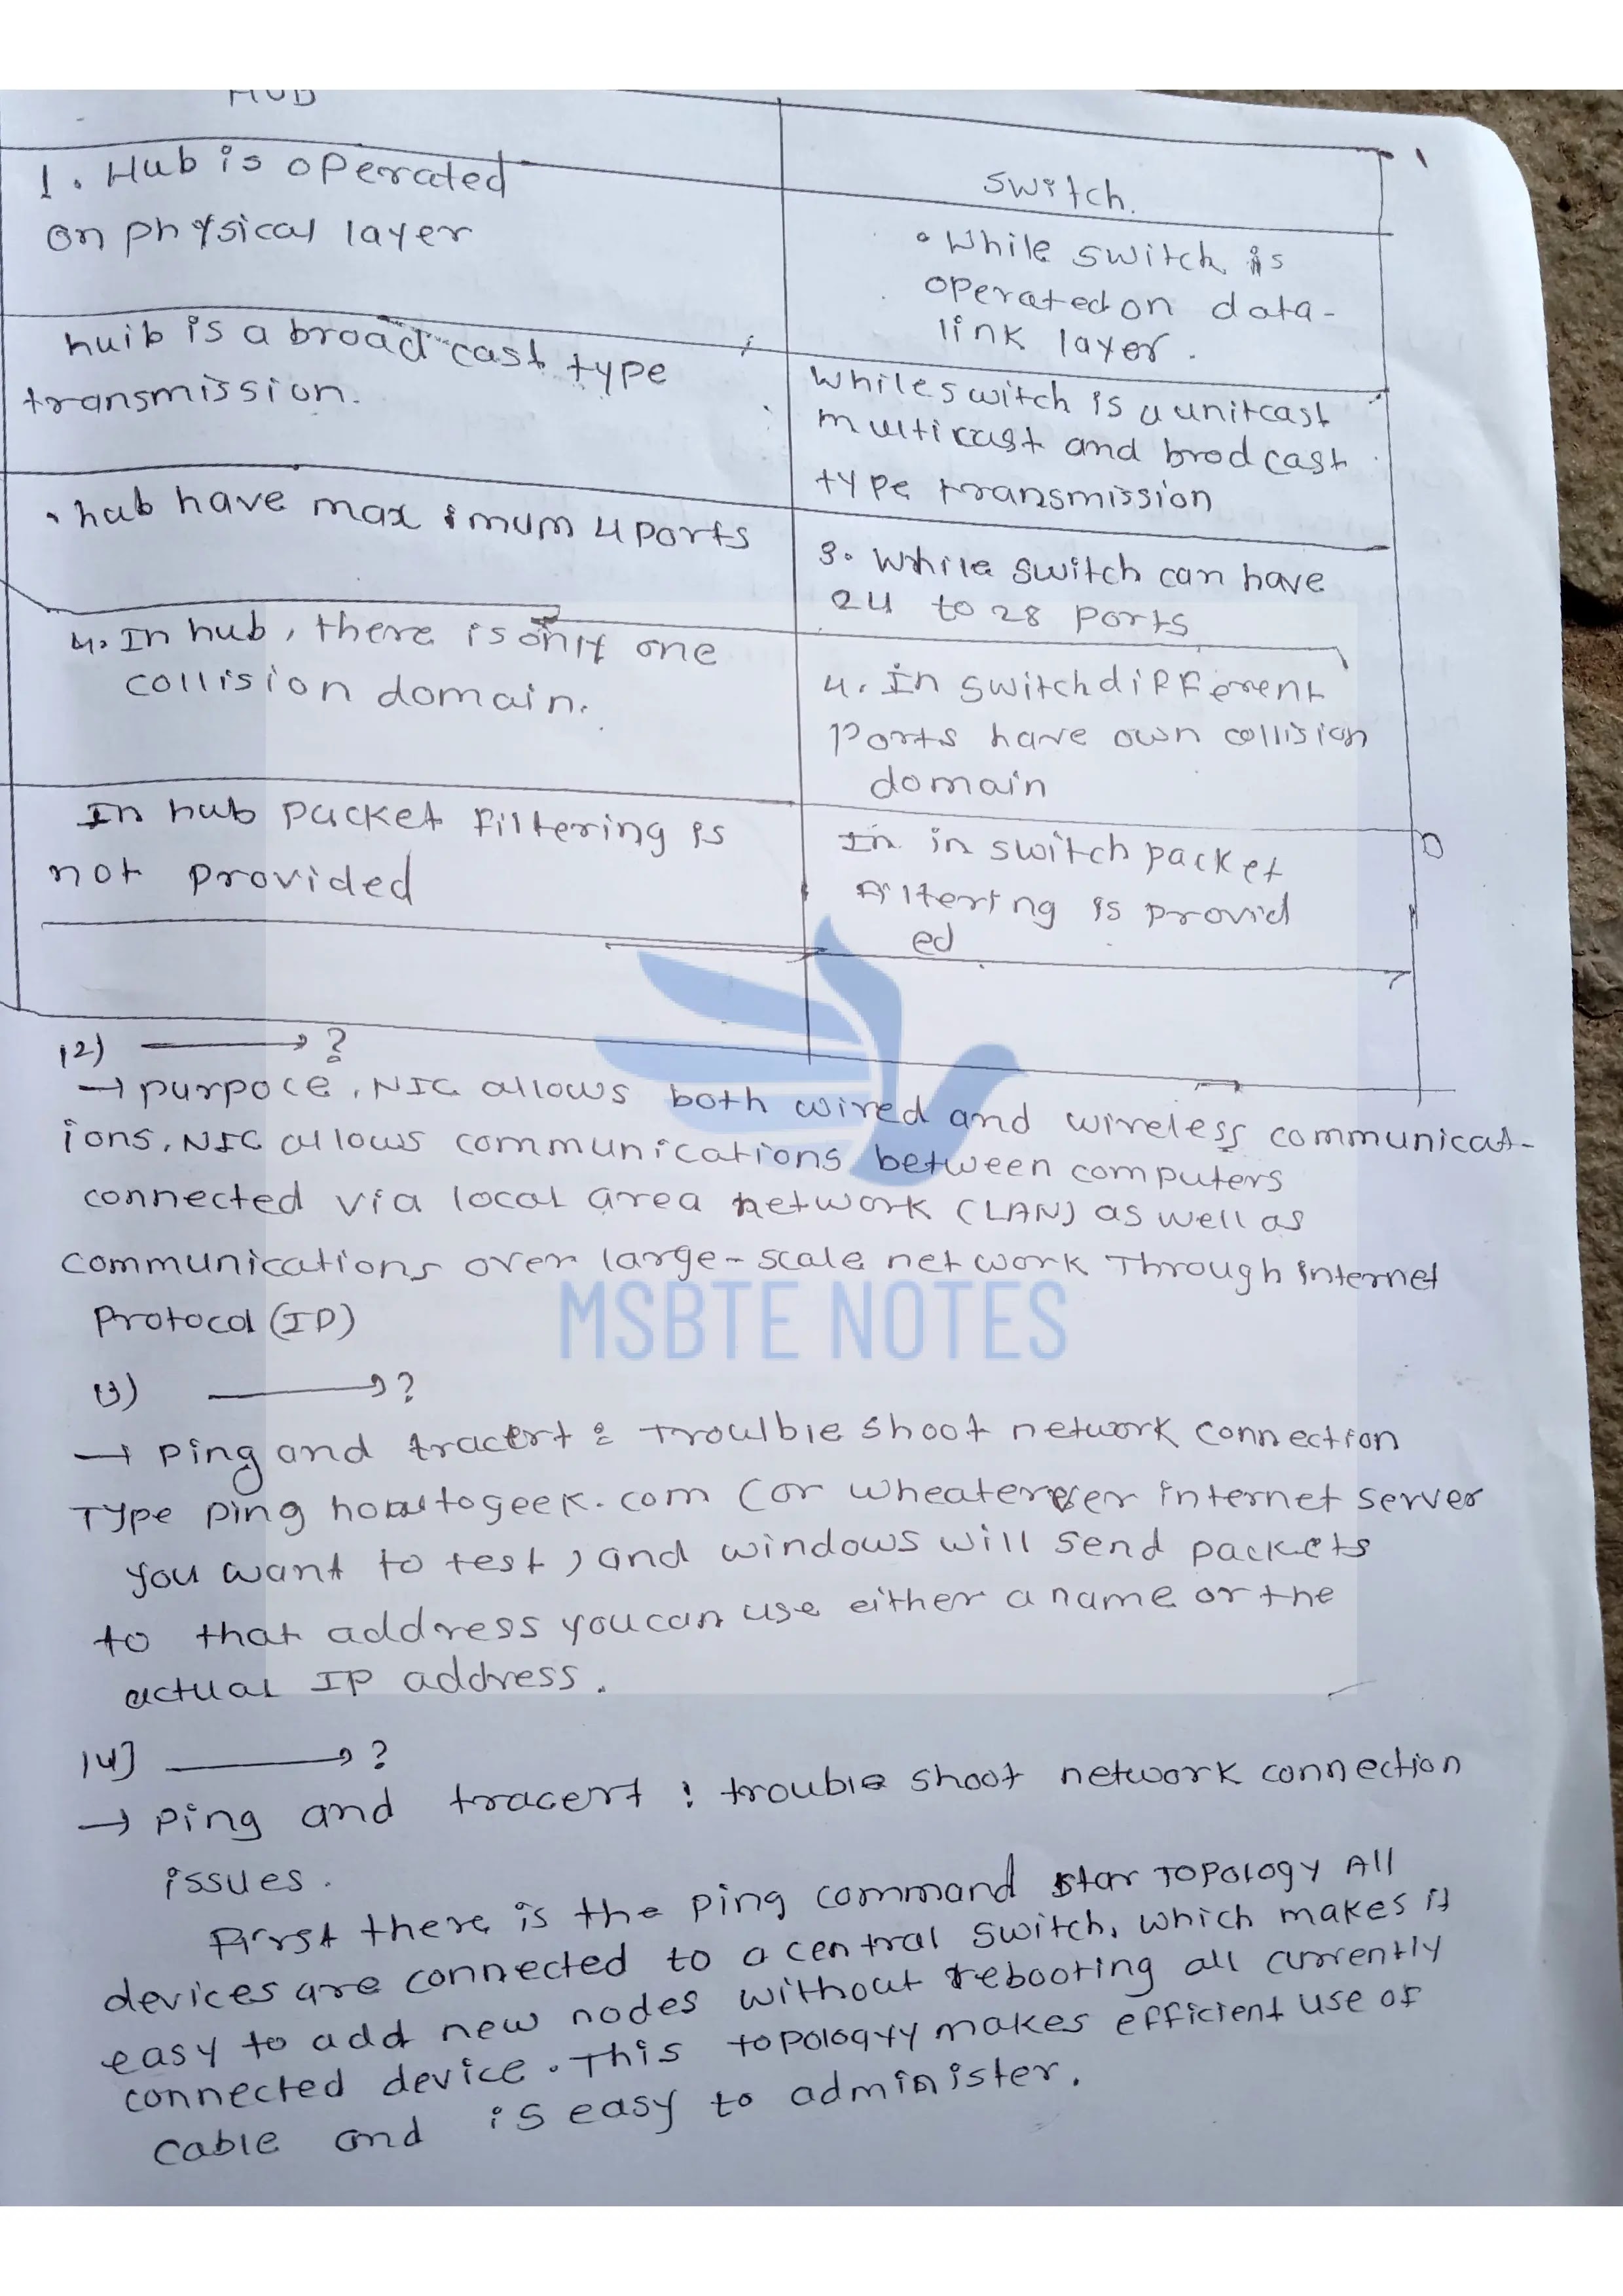 HUB
1. Hub is operated
on physical layer
switch.
• While switch is
operated on data-
link layer.
huib is a broad cast type
transmission.
While switch is a unitcast
multicast and brodcast
type transmission
• hub have maximum 4 ports
3. While switch can have
24 to 28 ports
4. In hub, there is only one
collision domain.
4. In switch different
Ports have own collision
domain
In hub packet filtering is
not provided
In in switch packet
filtering is provid
ed
12) → ?
→ purpoce. NIC allows both wired and wireless communicat-
ions. NIC allows communications between computers
connected via local area network (LAN) as well as
communications over large-scale network Through internet
Protocol (IP)
13) → ?
→ Ping and tracert : Troulble shoot network connection
Type ping howtogeek.com (or internet server
you want to test, and windows will send packets
to that address you can use either a name or the
actual IP address.
14] → ?
→ Ping and tracert : trouble shoot network connection
issues.
First there is the ping command star TOPOLOGY All
devices are connected to a central switch, which makes it
easy to add new nodes without rebooting all currently
connected device. This topologyy makes efficient use of
cable and is easy to administer.
MSBTE NOTES